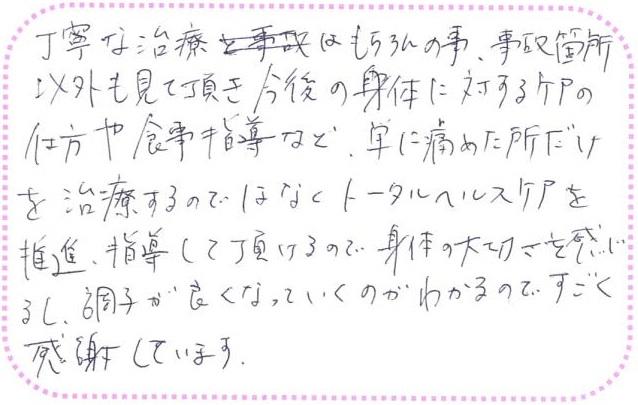 丁寧な治療と事故はもちろんの事、事故箇所
以外も見て頂き今後の身体に対するケアの
仕方や食事指導など、単に痛めた所だけ
を治療するのではなくトータルヘルスケアを
推進、指導して頂けるので身体の大切さを感じ
るし、調子が良くなっていくのがわかるのですごく
感謝しています。